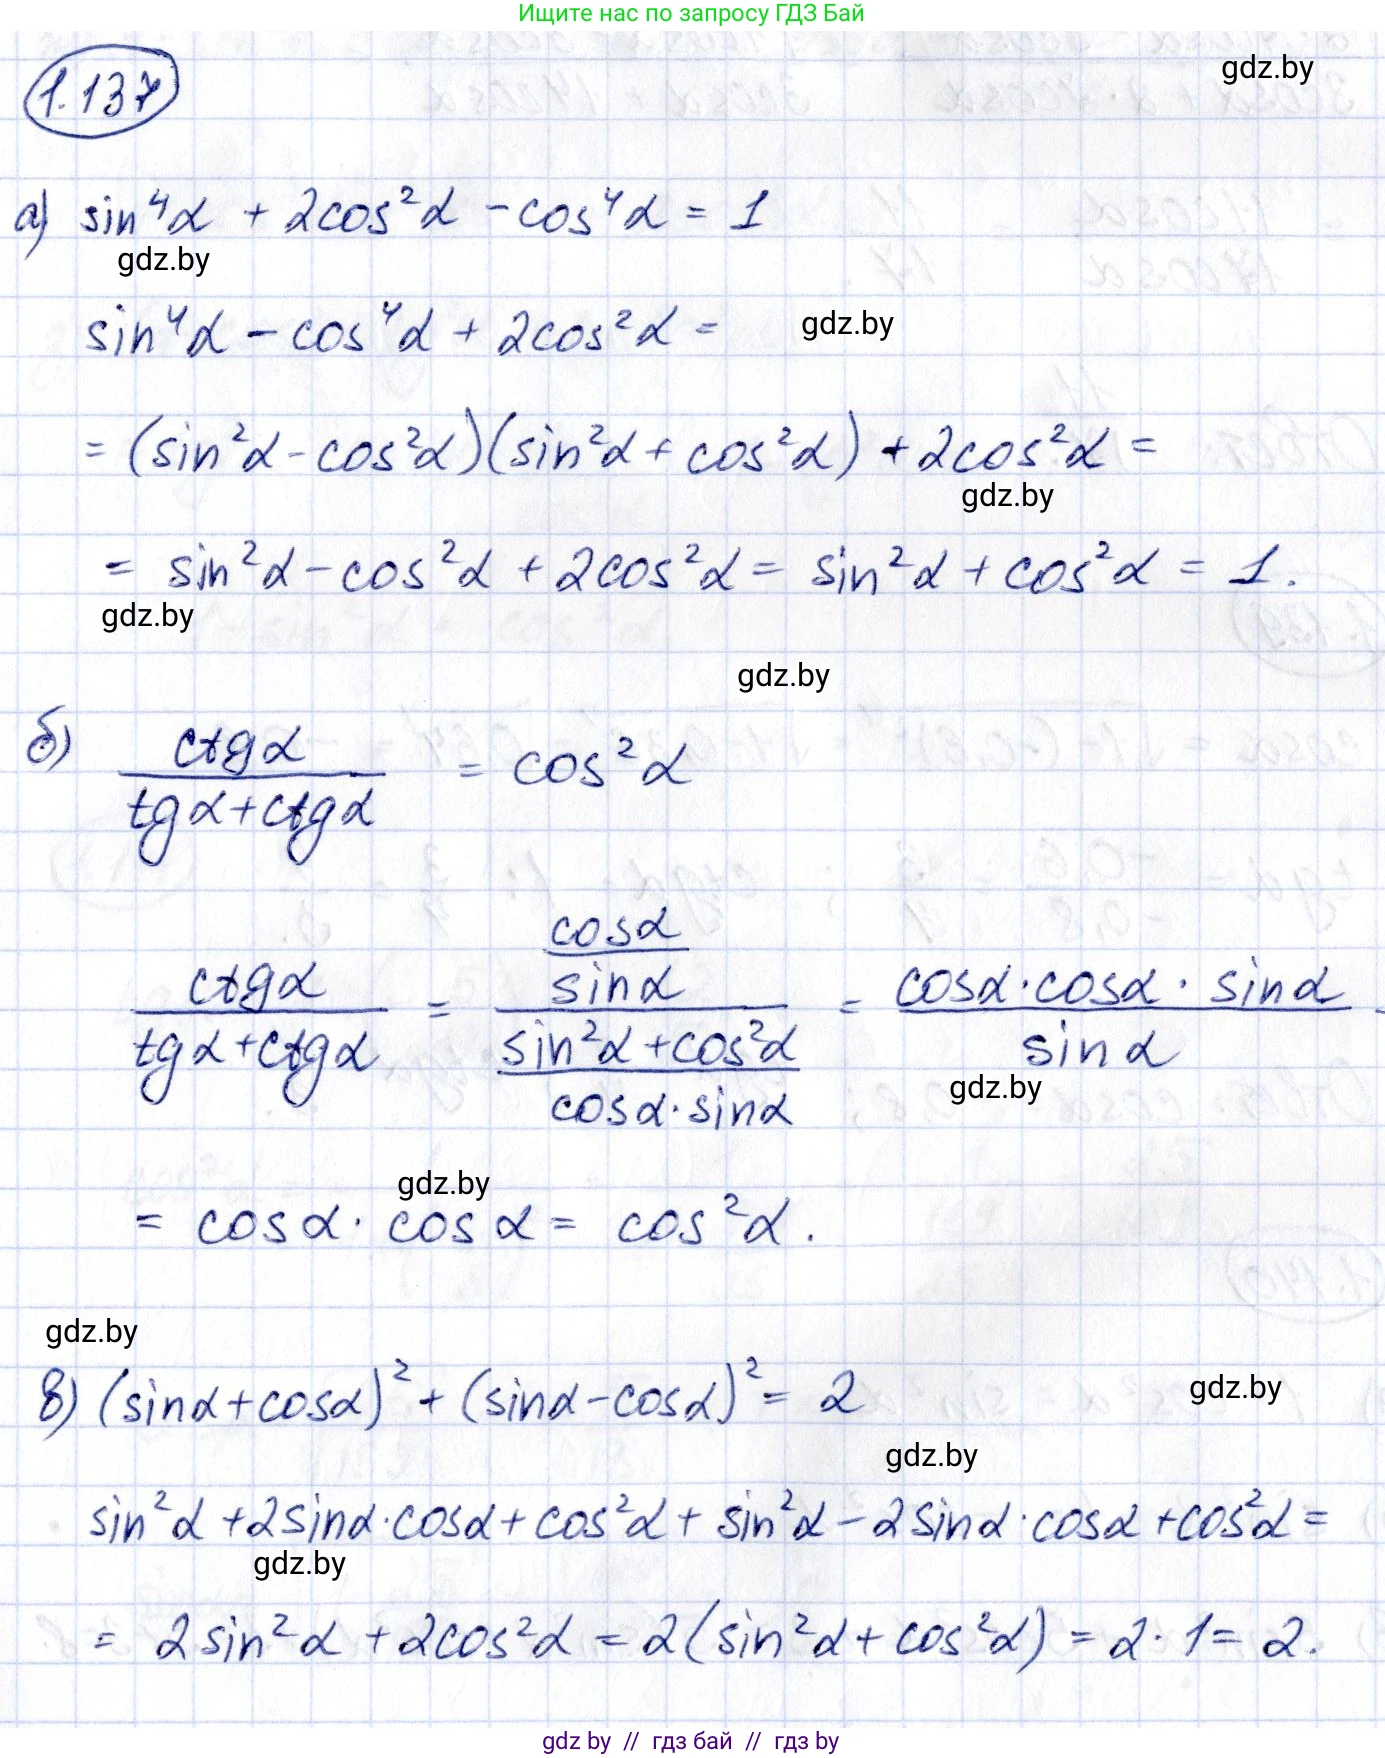 Ищите нас по запросу ГДЗ Бай
gdz.by
1.137
а) sin⁴α + 2cos²α - cos⁴α = 1
gdz.by
sin⁴α - cos⁴α + 2cos²α =
gdz.by
= (sin²α - cos²α)(sin²α + cos²α) + 2cos²α =
gdz.by
= sin²α - cos²α + 2cos²α = sin²α + cos²α = 1.
gdz.by
gdz.by
б) ctgα / (tgα + ctgα) = cos²α
ctgα / (tgα + ctgα) = (cosα / sinα) / ((sin²α + cos²α) / (cosα · sinα)) = (cosα · cosα · sinα) / sinα =
gdz.by
gdz.by
= cosα · cosα = cos²α.
gdz.by
в) (sinα + cosα)² + (sinα - cosα)² = 2
gdz.by
gdz.by
sin²α + 2sinα · cosα + cos²α + sin²α - 2sinα · cosα + cos²α =
gdz.by
= 2sin²α + 2cos²α = 2(sin²α + cos²α) = 2 · 1 = 2.
gdz by // гдз бай // гдз by